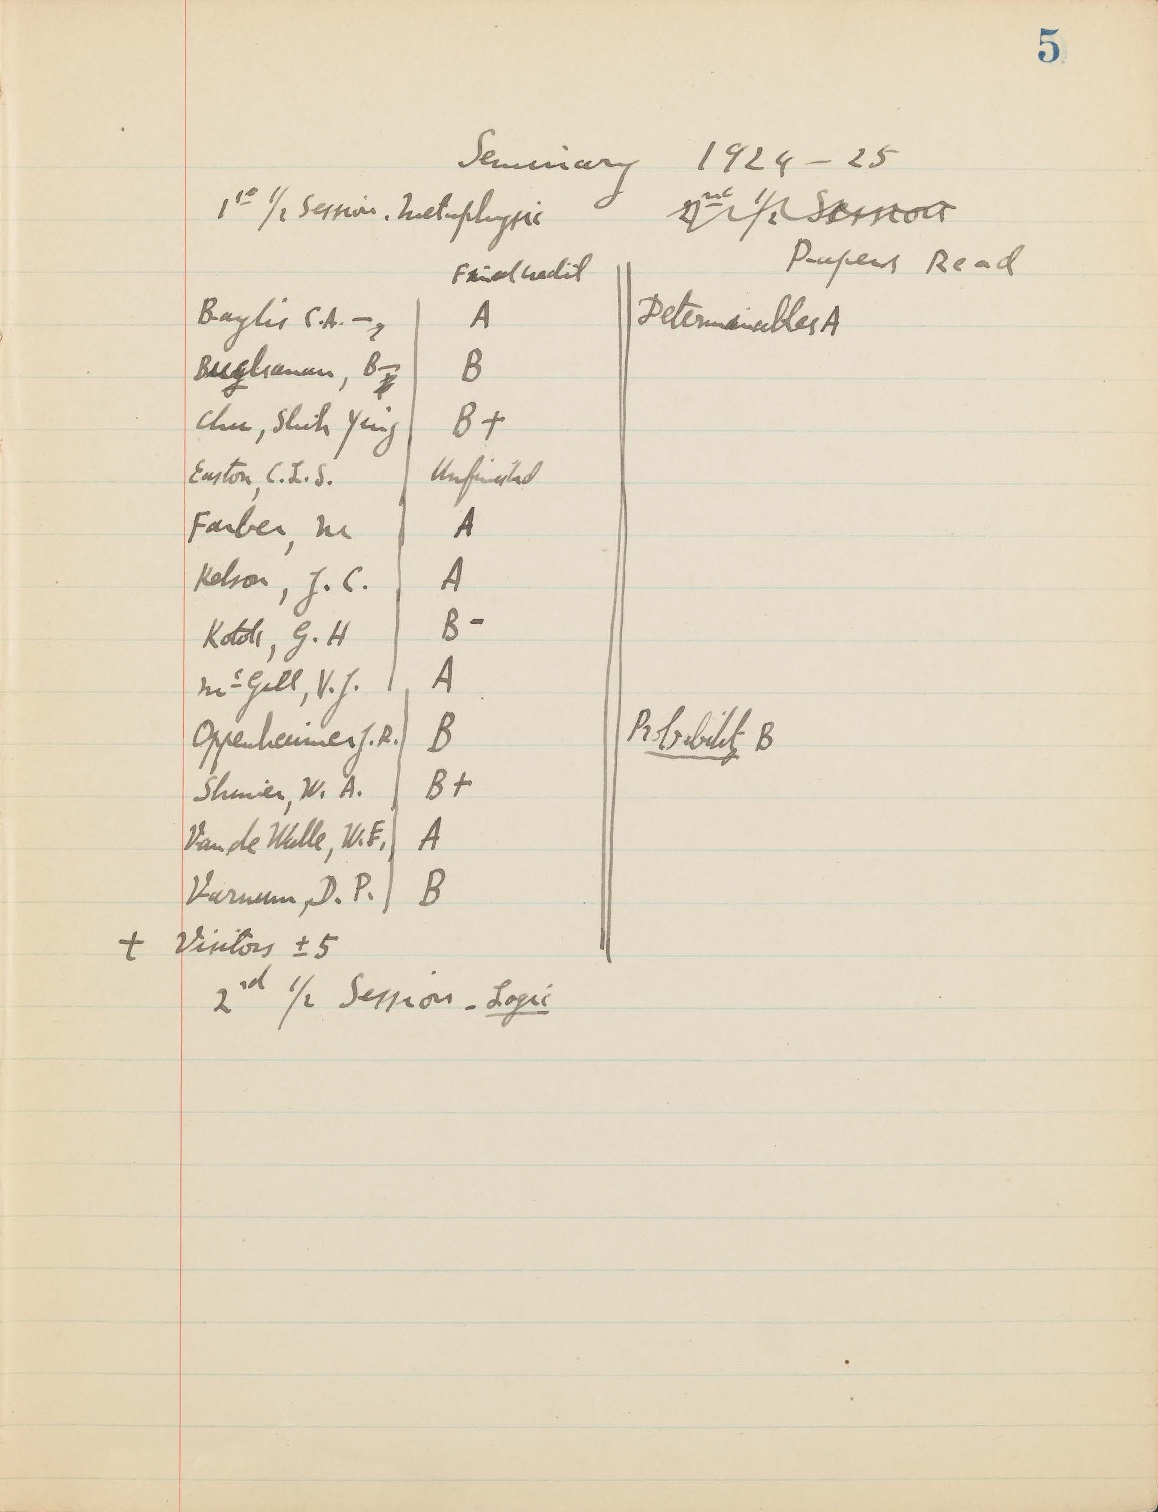 5
Seminary 1924 - 25
1st 1/2 Session. Metaphysic 2nd 1/2 Session
Final credit Papers Read
Baylis C.A. A Determinables A
Bughanan, B B
Chu, Shih Ying B+
Easton, C.L.S. Unfinished
Farber, M A
Kelson, J. C. A
G. H B-
McGill, V.J. A
Oppenheimer J.R. B Probability B
W. A. B+
Van de Walle, W.F. A
Varnum, D. P. B
+ Visitors ± 5
2nd 1/2 Session - Logic